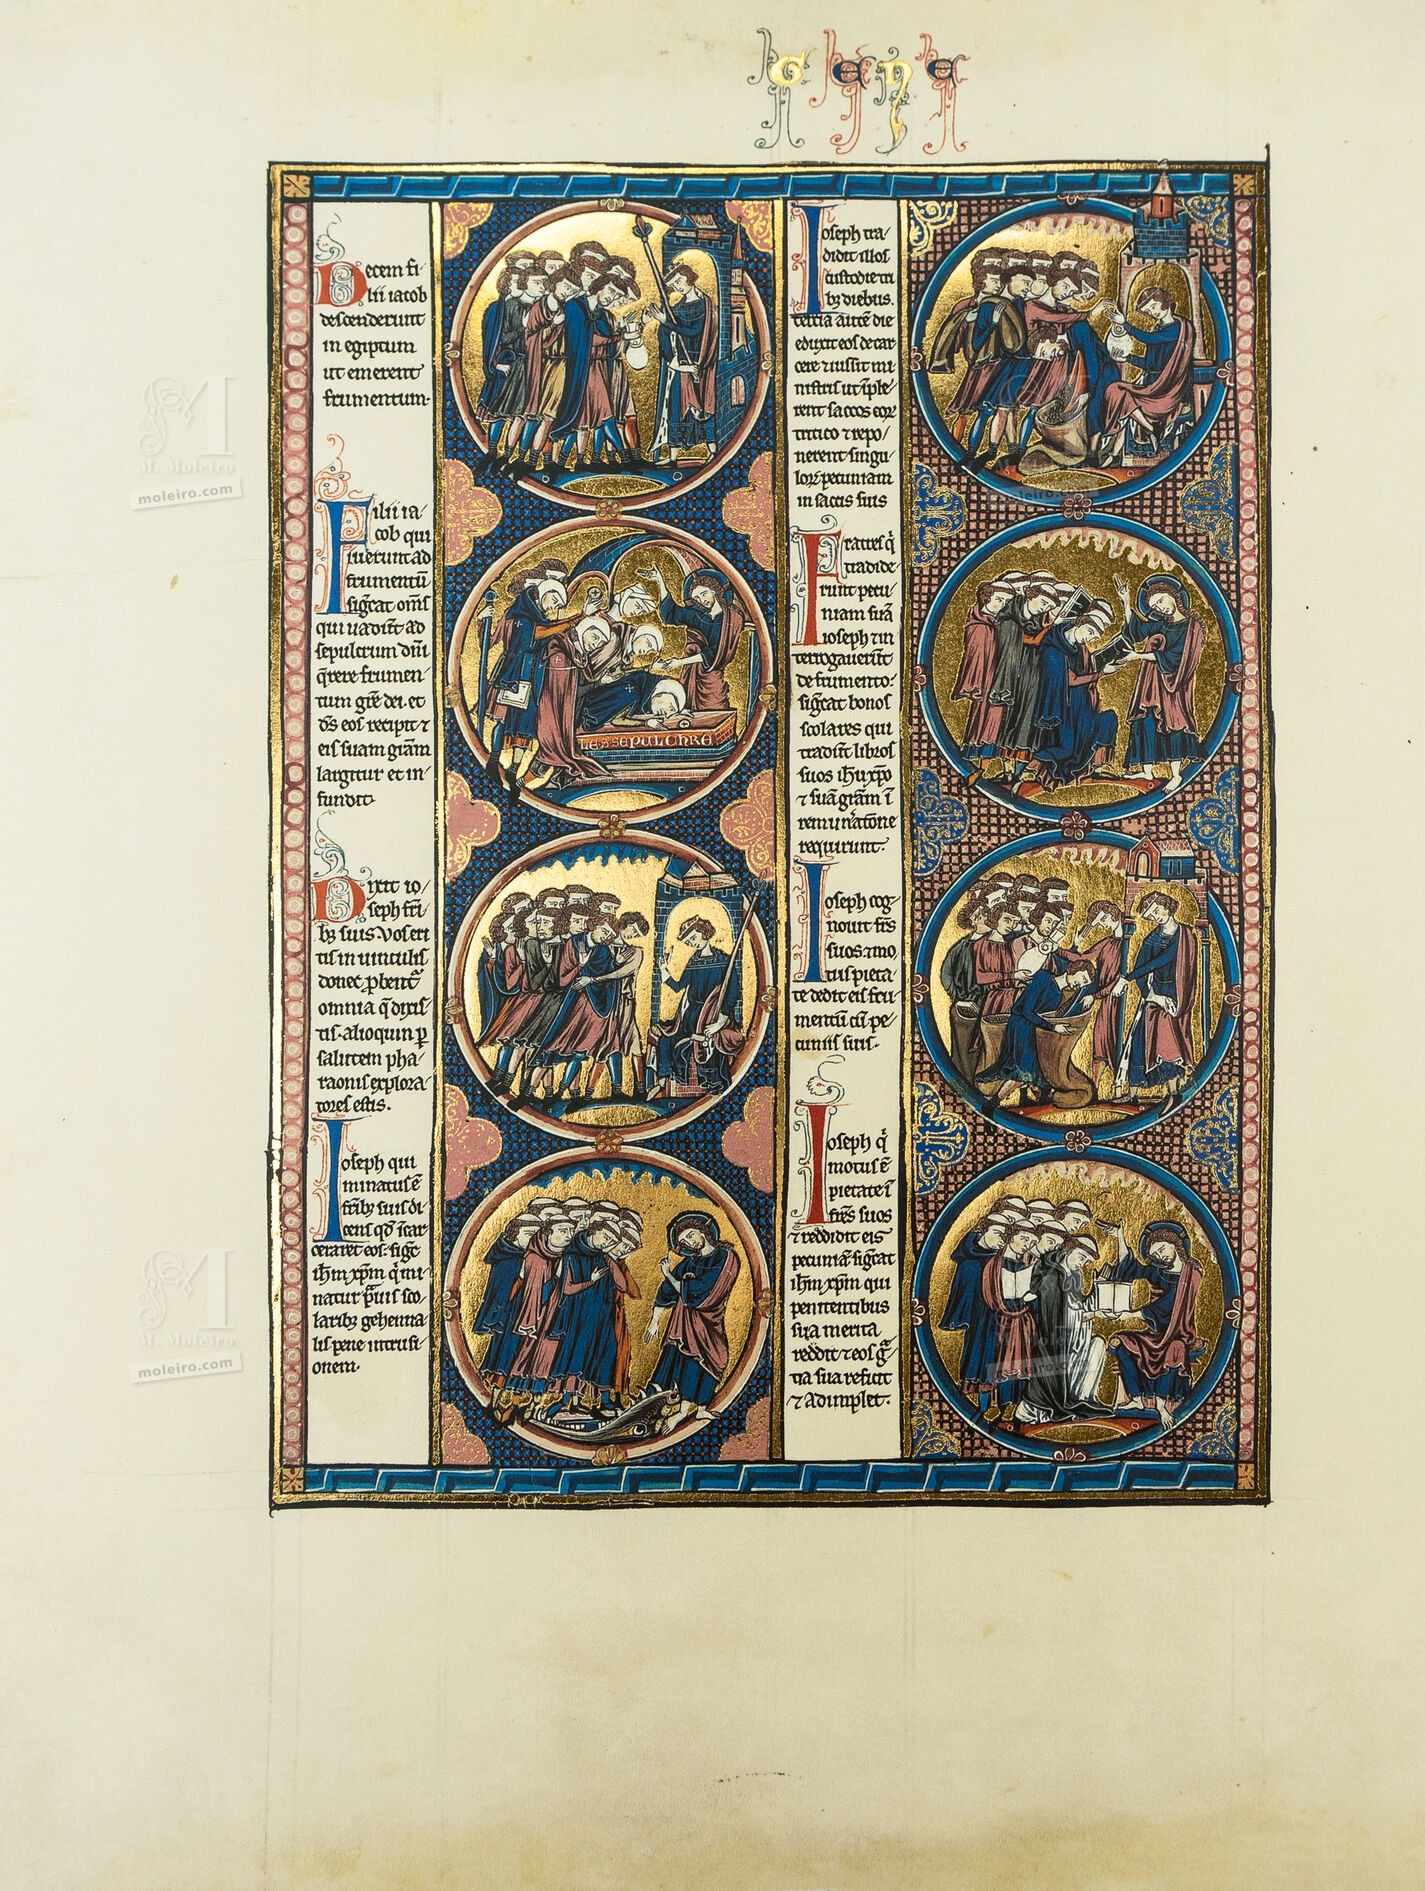 Decem fi-
lii iacob
descenderunt
in egiptum
ut emerent
frumentum.
Filii ia-
cob qui
iuerunt ad
frumentū
sig̃cat om̃s
qui uadūt ad
sepulcrum dñi
q̃rere frumen-
tum gr̃e dei. et
d̃s eos recipit ⁊
eis suam gr̃am
largitur et in-
fundit.
LESSEPULCHRE
Dixit io-
seph fri-
bꝫ suis. Vos eri
tis in uinculis
donec ꝓbent᷑
omnia q̃ dixis
tis. alioquin ꝑ
salutem pha-
raonis explora-
tores estis.
Ioseph qui
minatus ē
fr̃ibꝫ suis di
cens qđ ĩcar
ceraret eos. sig̃t
ih̃m xp̃m q̃ mi-
natur p̃uis sco-
laribꝫ gehenna-
lis pene intrusi-
onem.
Ioseph tra-
didit illos
custodie tri
bꝫ diebus.
tercia autē die
eduxit eos de car
cere ⁊ iussit mi-
nistris ut īple-
rent saccos eoꝝ
tritico ⁊ repo-
nerent singu-
loꝝ pecuniam
in sacis suis
Fratres q̇
tradide-
runt pecu-
niam suā
ioseph ⁊ in
terrogauerūt
de frumento.
sig̃cat bonos
scolares qui
tradūt libros
suos ih̃u xp̃o
⁊ suā gr̃am ī
remun̄atione
requirunt.
Ioseph cog-
nouit fr̃s
suos. ⁊ mo
tus pieta
te dedit eis fru-
mentū cū pe-
cuniis suis.
Ioseph q̇
motus ē
pietate ī
fr̃es suos
⁊ reddidit eis
pecuniā. sig̃cat
ih̃m xp̃m qui
penitentibus
sua merita
reddit ⁊ eos g̃-
tia sua reficit
⁊ adimplet.
M. Moleiro
moleiro.com
M. Moleiro
moleiro.com